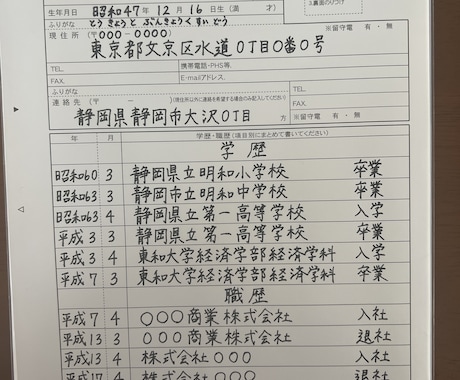 生年月日 昭和47年12月16日生(満 才)
ふりがな とうきょうと ぶんきょうく すいどう
現住所 (〒000-0000) ※留守電 有・無
東京都文京区水道0丁目0番0号
TEL. 携帯電話・PHS等.
FAX. E-mailアドレス.
ふりがな
連絡先 (〒 - ) (現住所以外に連絡を希望する場合のみ記入してください) ※留守電 有・無
静岡県静岡市大沢0丁目 TEL.
FAX.
年 月 学歴・職歴(項目別にまとめて書いてください)
学歴
昭和60 3 静岡県立明和小学校 卒業
昭和63 3 静岡市立明和中学校 卒業
昭和63 4 静岡県立第一高等学校 入学
平成3 3 静岡県立第一高等学校 卒業
平成3 4 東和大学経済学部経済学科 入学
平成7 3 東和大学経済学部経済学科 卒業
職歴
平成7 4 〇〇〇商業株式会社 入社
平成13 3 〇〇〇商業株式会社 退社
平成13 4 株式会社〇〇〇 入社
平成17 株式会社〇〇〇 退社